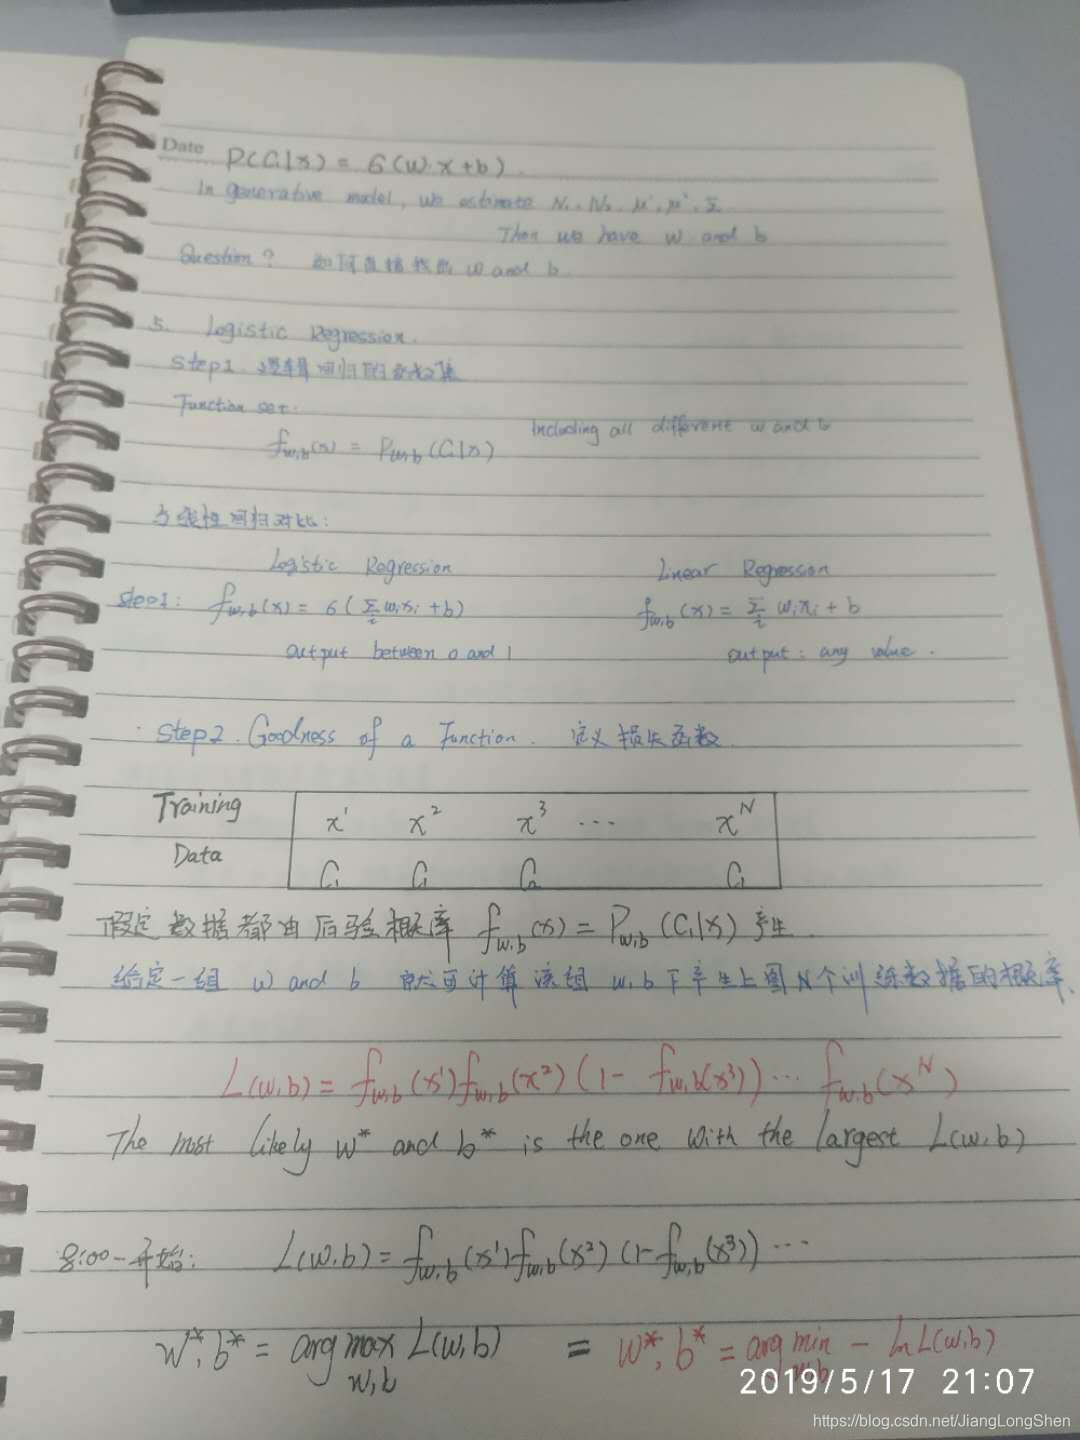 Date P(C₁|x) = σ(w·x+b).
In generative model, we estimate N₁, N₂, μ¹, μ², Σ
Then we have w and b
Question? 如何直接找出 w and b
5. Logistic Regression.
Step1. 逻辑回归的函数集
Function set:
f_{w,b}(x) = P_{w,b}(C₁|x) Including all different w and b
与线性回归对比:
Logistic Regression Linear Regression
step1: f_{w,b}(x) = σ(Σ_i w_i x_i + b) f_{w,b}(x) = Σ_i w_i x_i + b
output between 0 and 1 output: any value.
Step2. Goodness of a Function. 定义损失函数
Training x¹ x² x³ ... x^N
Data C₁ C₁ C₂ C₁
假定数据都由后验概率 f_{w,b}(x) = P_{w,b}(C₁|x) 产生
给定一组 w and b 就可计算该组 w,b下产生上图N个训练数据的概率.
L(w,b) = f_{w,b}(x¹) f_{w,b}(x²) (1- f_{w,b}(x³)) ... f_{w,b}(x^N)
The most likely w* and b* is the one with the largest L(w,b)
8:00-开始: L(w,b) = f_{w,b}(x¹) f_{w,b}(x²) (1-f_{w,b}(x³)) ...
w*,b* = arg max_{w,b} L(w,b) = w*,b* = arg min_{w,b} - ln L(w,b)
2019/5/17 21:07
https://blog.csdn.net/JiangLongShen